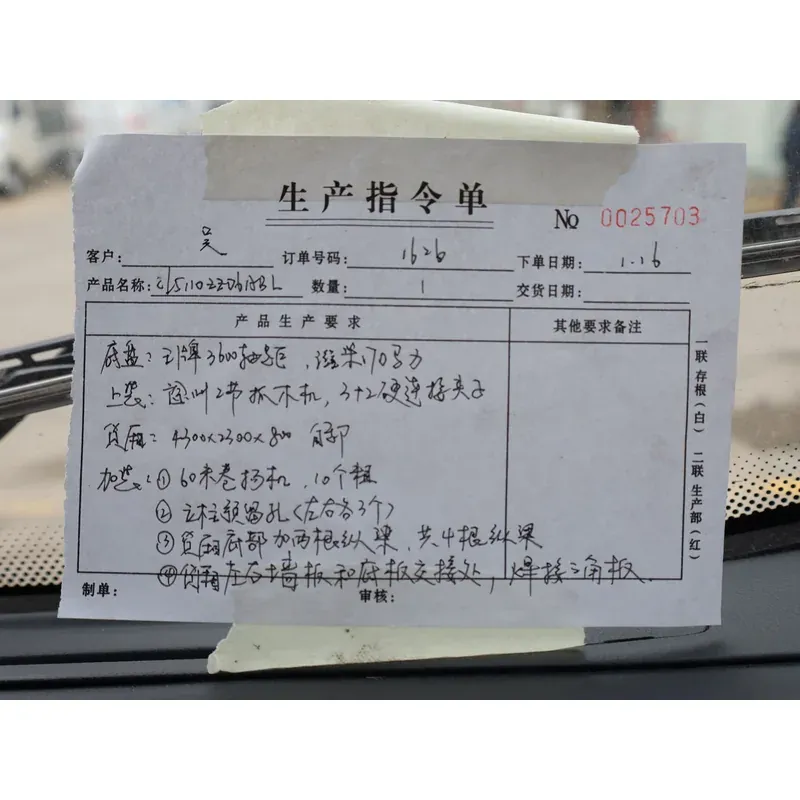 生产指令单
No 0025703
客户: 吴 订单号码: 1626 下单日期: 1.16
产品名称: 数量: 1 交货日期:
产品生产要求 其他要求备注
底盘: 王牌3600轴距, 潍柴170马力
上装: 2节抓木机, 3+2硬连接夹子
货厢: 4300x2300x800 自卸
加装: ①60米卷扬机, 10个粗
②立柱预留孔(左右各3个)
③货厢底部加两根纵梁, 共4根纵梁
④货厢左右墙板和底板交接处, 焊接三角板.
制单: 审核:
一联存根(白) 二联生产部(红)